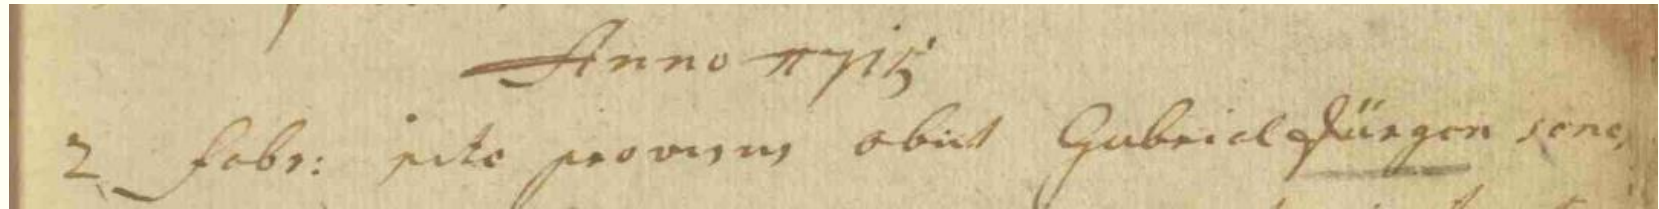 Anno 1715
2 febr: rite provisus obiit Gabriel Jürgen senex